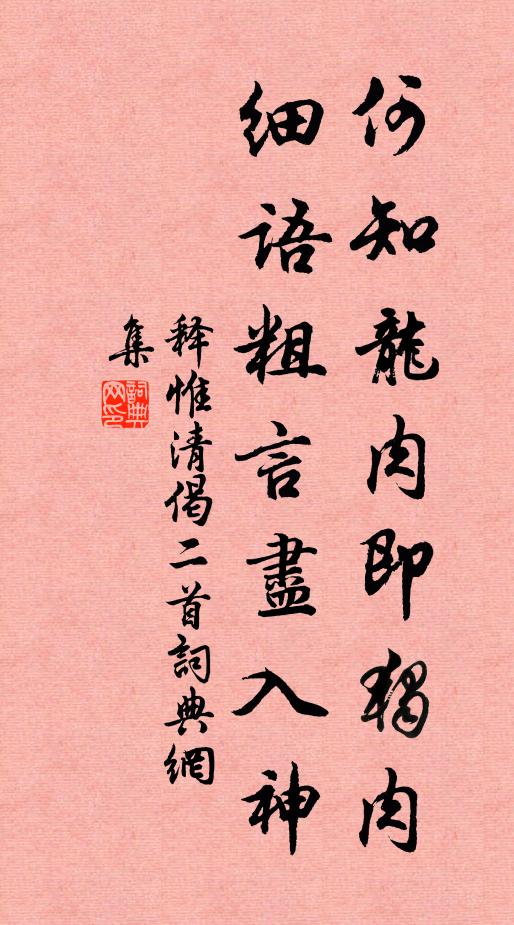 何知龍肉即猪肉
細語粗言盡入神
释惟清偈二首詞典網
集
詞典網印